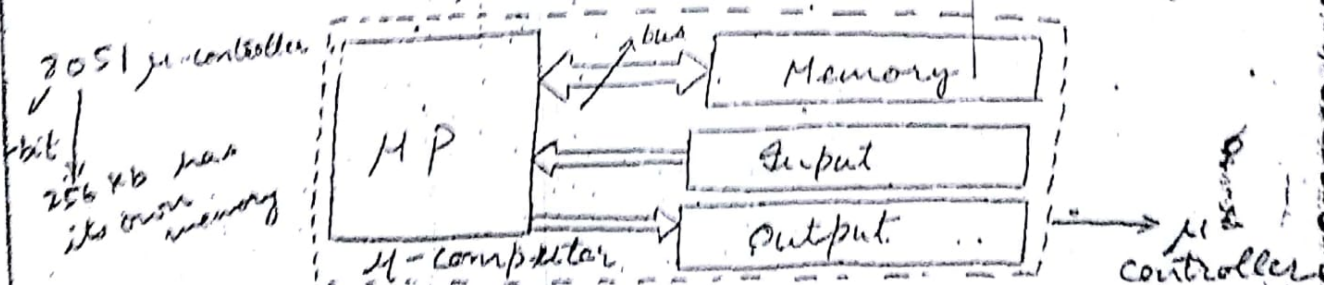 8051 μ-controller
-bit
256 kb has
its own
memory
μP
bus
Memory
Input
Output
μ-computer
μ
controller